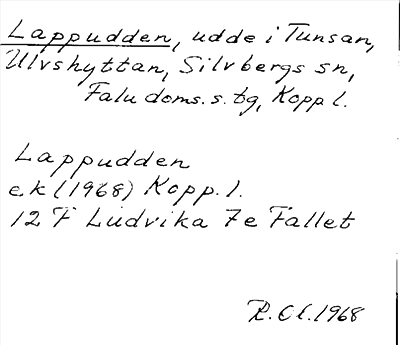 Lappudden, udde i Tunsan,
Ulvshyttan, Silvbergs sn,
Falu doms. s. tg, Kopp l.
Lappudden
e.k (1968) Kopp. l.
12 F Ludvika 7e Fallet
R. Cl. 1968